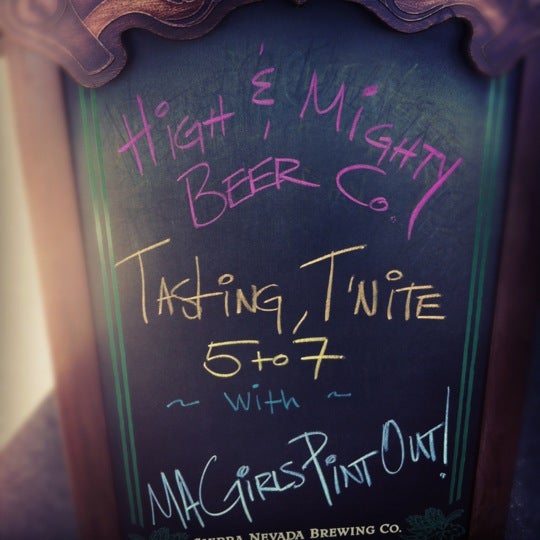 High & Mighty
Beer Co.
Tasting, T'nite
5 to 7
~ with ~
MA Girls Pint Out!
Sierra Nevada Brewing Co.